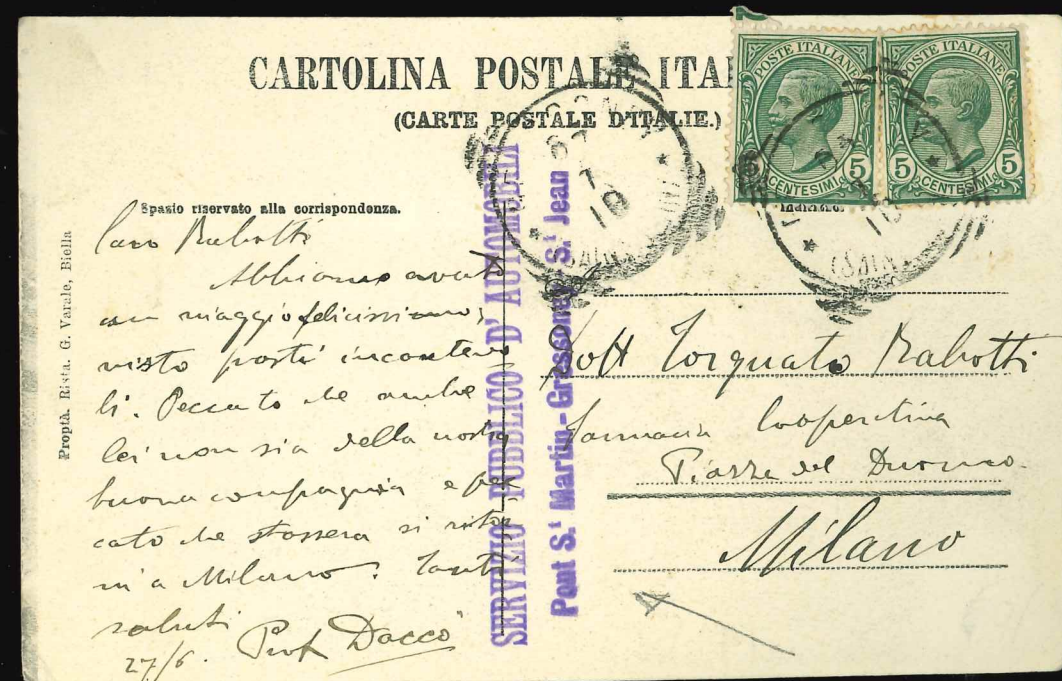 CARTOLINA POSTALE ITA
(CARTE POSTALE D'ITALIE.)
POSTE ITALIANE
5 5
CENTESIMI
POSTE ITALIANE
5 5
CENTESIMI
Spazio riservato alla corrispondenza.
Proptà. Rista. G. Varale, Biella
Caro Rabotti
Abbiamo avuto
un viaggio felicissimo,
visto posti incantevo
li. Peccato che anche
lei non sia della nostra
buona compagnia e pec
cato che stassera si ritor
ni a Milano. Tanti
saluti
Prof Daccò
27/6.
SERVIZIO PUBBLICO D'AUTOMOBILI
Pont S.t Martin-Gressoney S.t Jean
Dott Torquato Rabotti
Farmacia Cooperativa
Piazza del Duomo
Milano